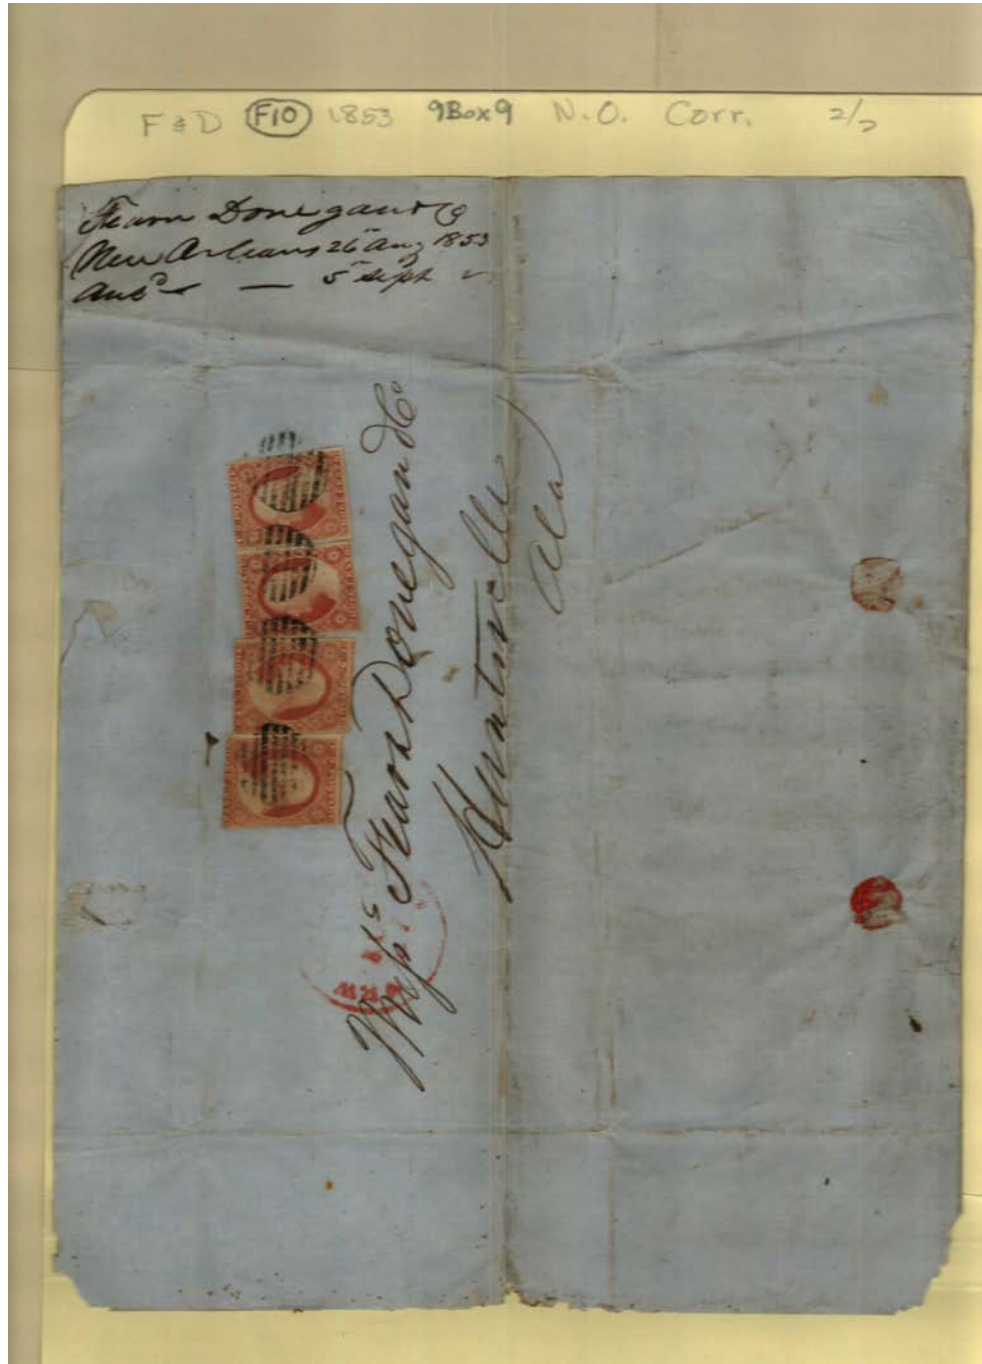 F & D F10 1853 9Box9 N.O. Corr. 2/2
Fearn Donegan & Co
New Orleans 26 Aug 1853
Ansd — — 5 Sept
Mess Fearn Donegan & Co
Huntsville
Ala